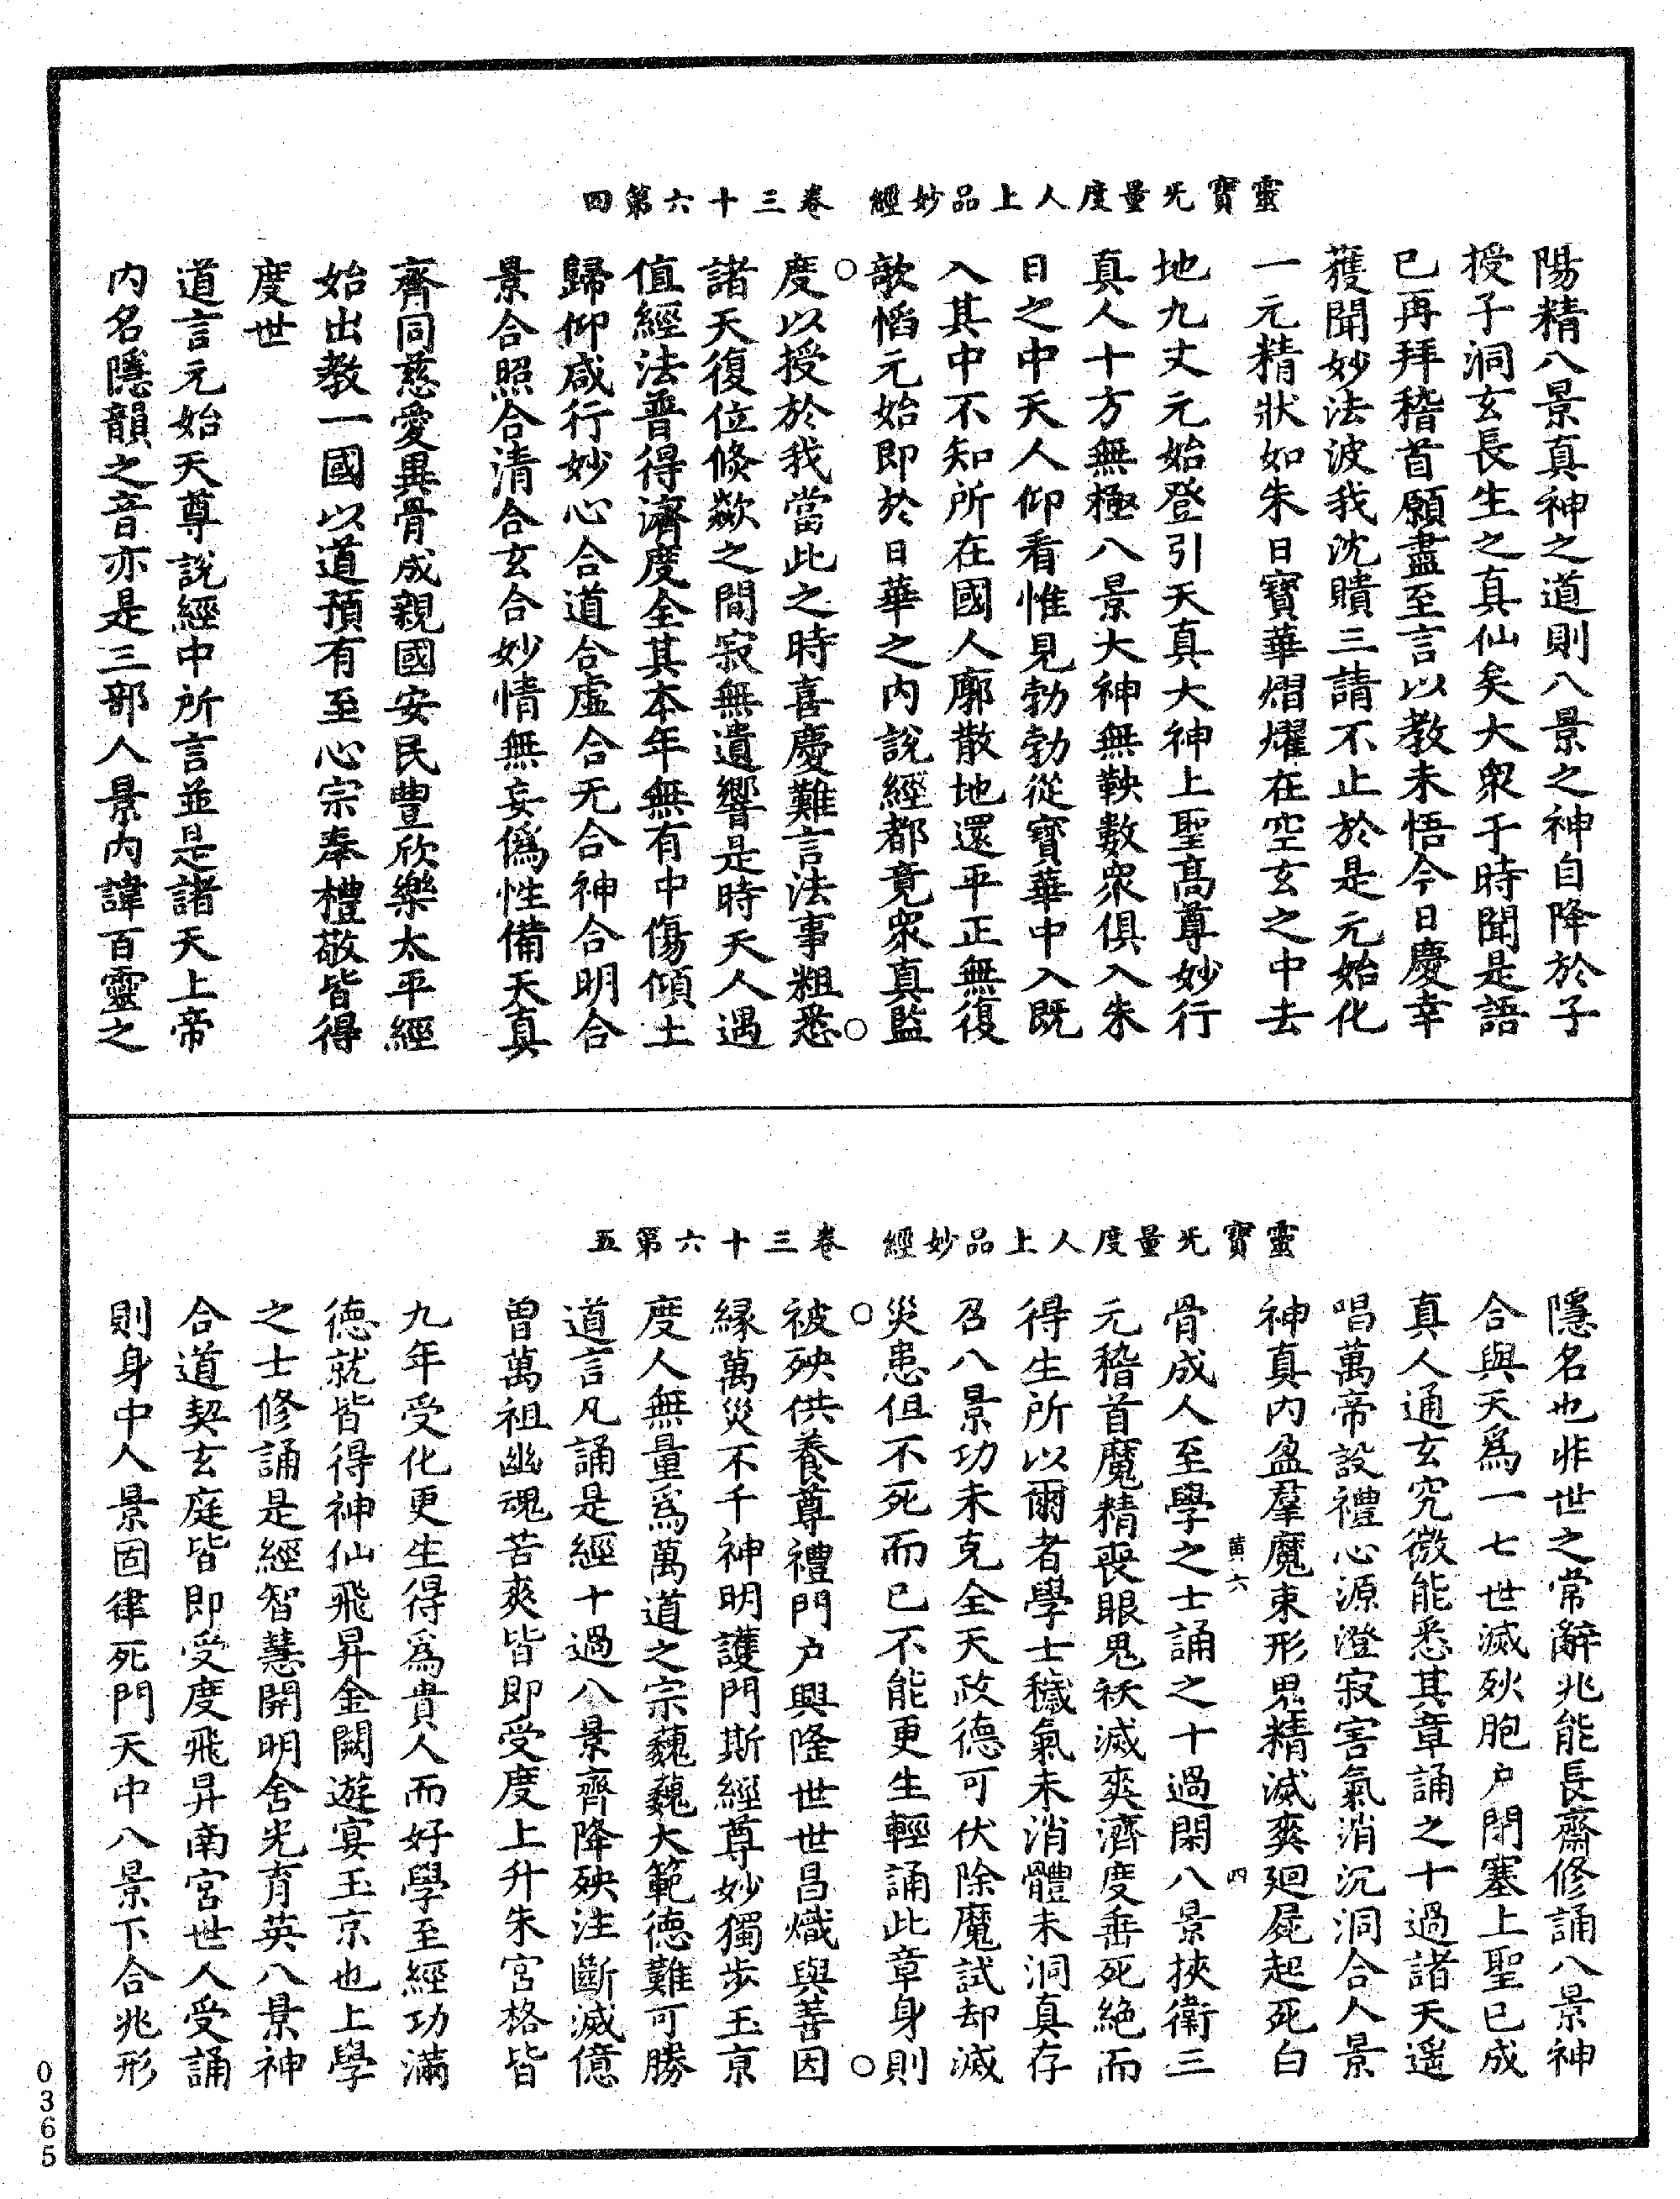 靈寶无量度人上品妙經　卷三十六第四
陽精八景真神之道則八景之神自降於子
授子洞玄長生之真仙矣大衆于時聞是語
已再拜稽首願盡至言以教未悟今日慶幸
獲聞妙法波我沈賾三請不止於是元始化
一元精狀如朱日寶華熠燿在空玄之中去
地九丈元始登引天真大神上聖高尊妙行
真人十方無極八景大神無鞅數衆俱入朱
日之中天人仰看惟見勃勃從寶華中入既
入其中不知所在國人廓散地還平正無復
歊慆元始即於日華之內說經都竟衆真監
度以授於我當此之時喜慶難言法事粗悉
諸天復位倏歘之間寂無遺響是時天人遇
值經法普得濟度全其本年無有中傷傾土
歸仰咸行妙心合道合虛合无合神合明合
景合照合清合玄合妙情無妄僞性備天真
齊同慈愛異骨成親國安民豊欣樂太平經
始出教一國以道預有至心宗奉禮敬皆得
度世
道言元始天尊說經中所言並是諸天上帝
內名隱韻之音亦是三部人景內諱百靈之
靈寶无量度人上品妙經　卷三十六第五
隱名也非世之常辭兆能長齋修誦八景神
合與天爲一七世滅狄胞户閉塞上聖已成
真人通玄究微能悉其章誦之十過諸天遥
唱萬帝設禮心源澄寂害氣消沉洞合人景
神真內盈羣魔束形鬼精滅爽廻屍起死白
黄六　四
骨成人至學之士誦之十過閑八景挾衛三
元稽首魔精喪眼鬼祅滅爽濟度垂死絶而
得生所以爾者學士穢氣未消體未洞真存
召八景功未克全天政德可伏除魔試却滅
災患但不死而已不能更生輕誦此章身則
被殃供養尊禮門户興隆世世昌熾與善因
緣萬災不千神明護門斯經尊妙獨步玉京
度人無量爲萬道之宗巍巍大範德難可勝
道言凡誦是經十過八景齊降殃注斷滅億
曾萬祖幽魂苦爽皆即受度上升朱宫格皆
九年受化更生得爲貴人而好學至經功滿
德就皆得神仙飛昇金闕遊宴玉京也上學
之士修誦是經智慧開明舍光育英八景神
合道契玄庭皆即受度飛昇南宮世人受誦
則身中人景固律死門天中八景下合兆形
0365